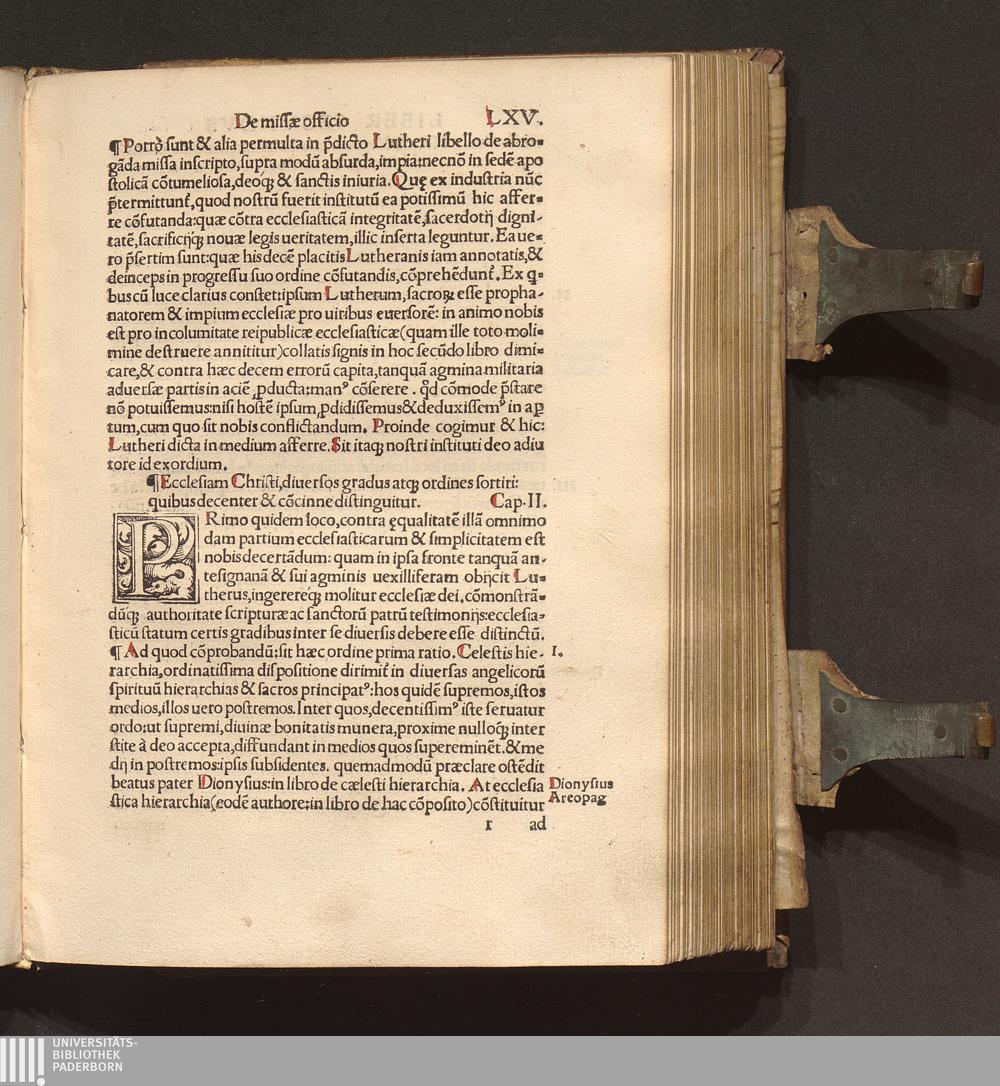 De missæ officio LXV.
¶ Porrò sunt & alia permulta in p̃dicto Lutheri libello de abro-
gãda missa inscripto, supra modũ absurda, impia: necnõ in sedẽ apo
stolicã cõtumeliosa, deoq́; & sanctis iniuria. Quę ex industria nũc
p̃termittunt̃, quod nostrũ fuerit institutũ ea potissimũ hic affer-
re cõfutanda: quæ cõtra ecclesiasticã integritatẽ, sacerdotij digni-
tatẽ, sacrificijq́; nouæ legis ueritatem, illic inserta leguntur. Ea ue-
ro p̃sertim sunt: quæ his decẽ placitis Lutheranis iam annotatis, &
deinceps in progressu suo ordine cõfutandis, cõprehẽdunt̃. Ex q-
bus cũ luce clarius constet: ipsum Lutherum, sacroꝝ esse propha-
natorem & impium ecclesiæ pro uiribus euersorẽ: in animo nobis
est pro incolumitate reipublicæ ecclesiasticæ (quam ille toto moli-
mine destruere annititur) collatis signis in hoc secũdo libro dimi-
care, & contra hæc decem errorũ capita, tanquã agmina militaria
aduersæ partis in aciẽ ꝓducta: manꝰ cõserere. qđ cõmode p̃stare
nõ potuissemus: nisi hostẽ ipsum ꝓdidissemus & deduxissemꝰ in ap̱
tum, cum quo sit nobis conflictandum. Proinde cogimur & hic:
Lutheri dicta in medium afferre. Sit itaq; nostri instituti deo adiu
tore id exordium.
¶ Ecclesiam Christi, diuersos gradus atq; ordines sortiri:
quibus decenter & cõcinne distinguitur. Cap. II.
PRimo quidem loco, contra ęqualitatẽ illã omnimo
dam partium ecclesiasticarum & simplicitatem est
nobis decertãdum: quam in ipsa fronte tanquã an-
tesignanã & sui agminis uexilliferam obijcit Lu-
therus, ingerereq́; molitur ecclesiæ dei. cõmonstrã-
dũq́; authoritate scripturæ ac sanctorũ patrũ testimonijs: ecclesia-
sticũ statum certis gradibus inter se diuersis debere esse distinctũ.
¶ Ad quod cõprobandũ: sit hæc ordine prima ratio. Celestis hie- I.
rarchia, ordinatissima dispositione dirimit̃ in diuersas angelicorũ
spirituũ hierarchias & sacros principatꝰ: hos quidẽ supremos, istos
medios, illos uero postremos. Inter quos, decentissimꝰ iste seruatur
ordo: ut supremi, diuinæ bonitatis munera, proxime nulloq́; inter
stite à deo accepta, diffundant in medios quos supereminẽt. & me
dij in postremos: ipsis subsidentes. quemadmodũ præclare ostẽdit
beatus pater Dionysius: in libro de cælesti hierarchia. At ecclesia Dionysius
stica hierarchia (eodẽ authore: in libro de hac cõposito) cõstituitur Areopag
r ad
UNIVERSITÄTS-
BIBLIOTHEK
PADERBORN